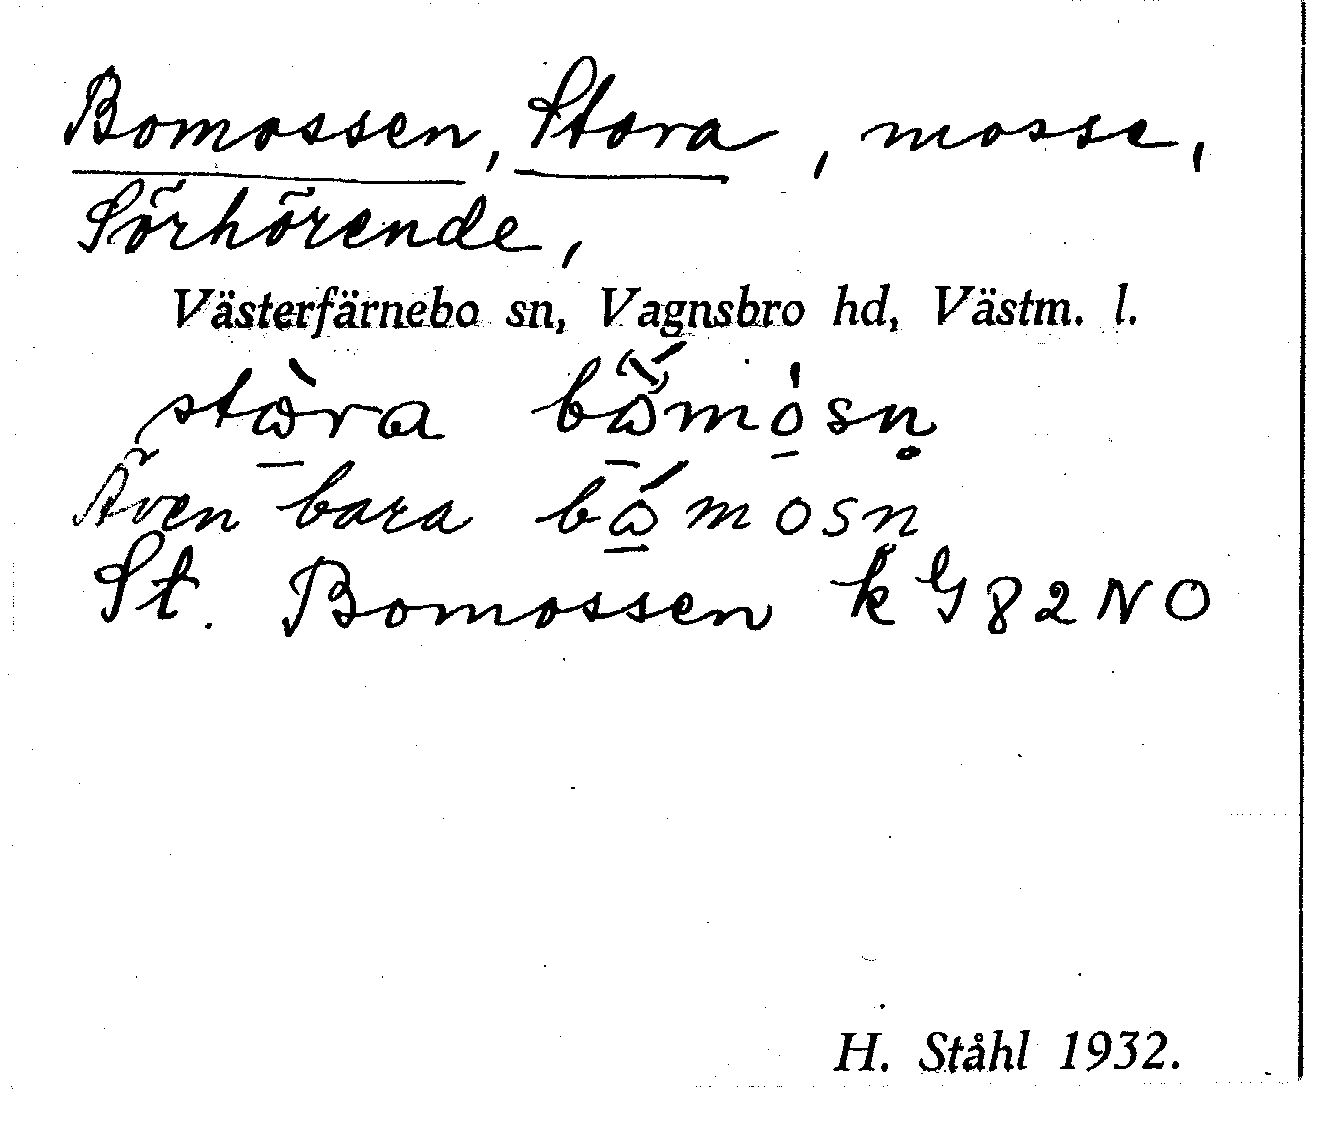 Bomossen, Stora, mosse,
Sörhörende,
Västerfärnebo sn, Vagnsbro hd, Västm. l.
stὼ̱ra bώ̱mo̱̍sn̥
Även bara bώ̱mosn
St. Bomossen k G 82 NO
H. Ståhl 1932.